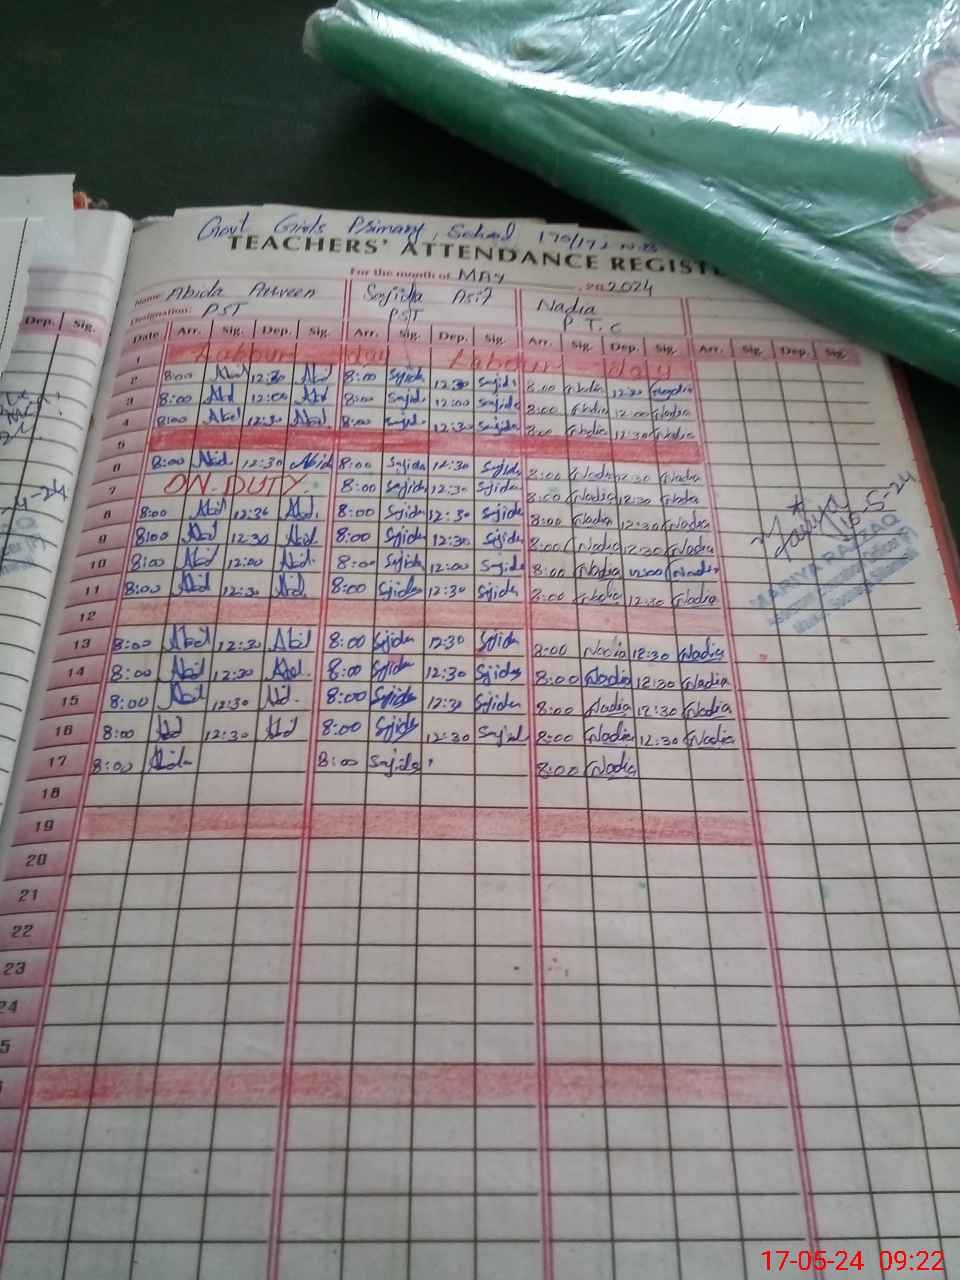 Govt Girls Primary School 170/172 N.B
TEACHERS' ATTENDANCE REGISTE
For the month of MAY 2024
Name: Abida Parveen Sajida Asif Nadia
Designation: PST PST P T. C
Dep. Sig. Date Arr. Sig. Dep. Sig. Arr. Sig. Dep. Sig. Arr. Sig. Dep. Sig. Arr. Sig. Dep. Sig.
1 Labbour day Labour day
2 8:00 Abid 12:30 Abid 8:00 Sajida 12:30 Sajida 8:00 Nadia 12:30 Nadia
3 8:00 Abid 12:00 Abid 8:00 Sajida 12:00 Sajida 8:00 Nadia 12:00 Nadia
4 8:00 Abid 12:30 Abid 8:00 Sajid 12:30 Sajida 8:00 Nadia 12:30 Nadia
5
6 8:00 Abid 12:30 Abid 8:00 Sajida 12:30 Sajida 8:00 Nadia 12:30 Nadia
7 ON DUTY 8:00 Sajida 12:30 Sajida 8:00 Nadia 12:30 Nadia
8 8:00 Abid 12:30 Abid. 8:00 Sajida 12:30 Sajida 8:00 Nadia 12:30 Nadia
9 8:00 Abid 12:30 Abid. 8:00 Sajida 12:30 Sajida 8:00 Nadia 12:30 Nadia
10 8:00 Abid 12:00 Abid. 8:00 Sajida 12:00 Sajida 8:00 Nadia 12:00 Nadia
11 8:00 Abid 12:30 Abid. 8:00 Sajida 12:30 Sajida 8:00 Nadia 12:30 Nadia
12
13 8:00 Abid 12:30 Abid 8:00 Sajida 12:30 Sajida 8:00 Nadia 12:30 Nadia
14 8:00 Abid 12:30 Abid. 8:00 Sajida 12:30 Sajida 8:00 Nadia 12:30 Nadia
15 8:00 Abid 12:30 Abid. 8:00 Sajida 12:30 Sajida 8:00 Nadia 12:30 Nadia
16 8:00 Abid 12:30 Abid 8:00 Sajida 12:30 Sajid 8:00 Nadia 12:30 Nadia
17 8:00 Abida 8:00 Sajida 8:00 Nadia
18
19
20
21
22
23
24
5
15-5-24
MARIYA RAZZAQ
17-05-24 09:22